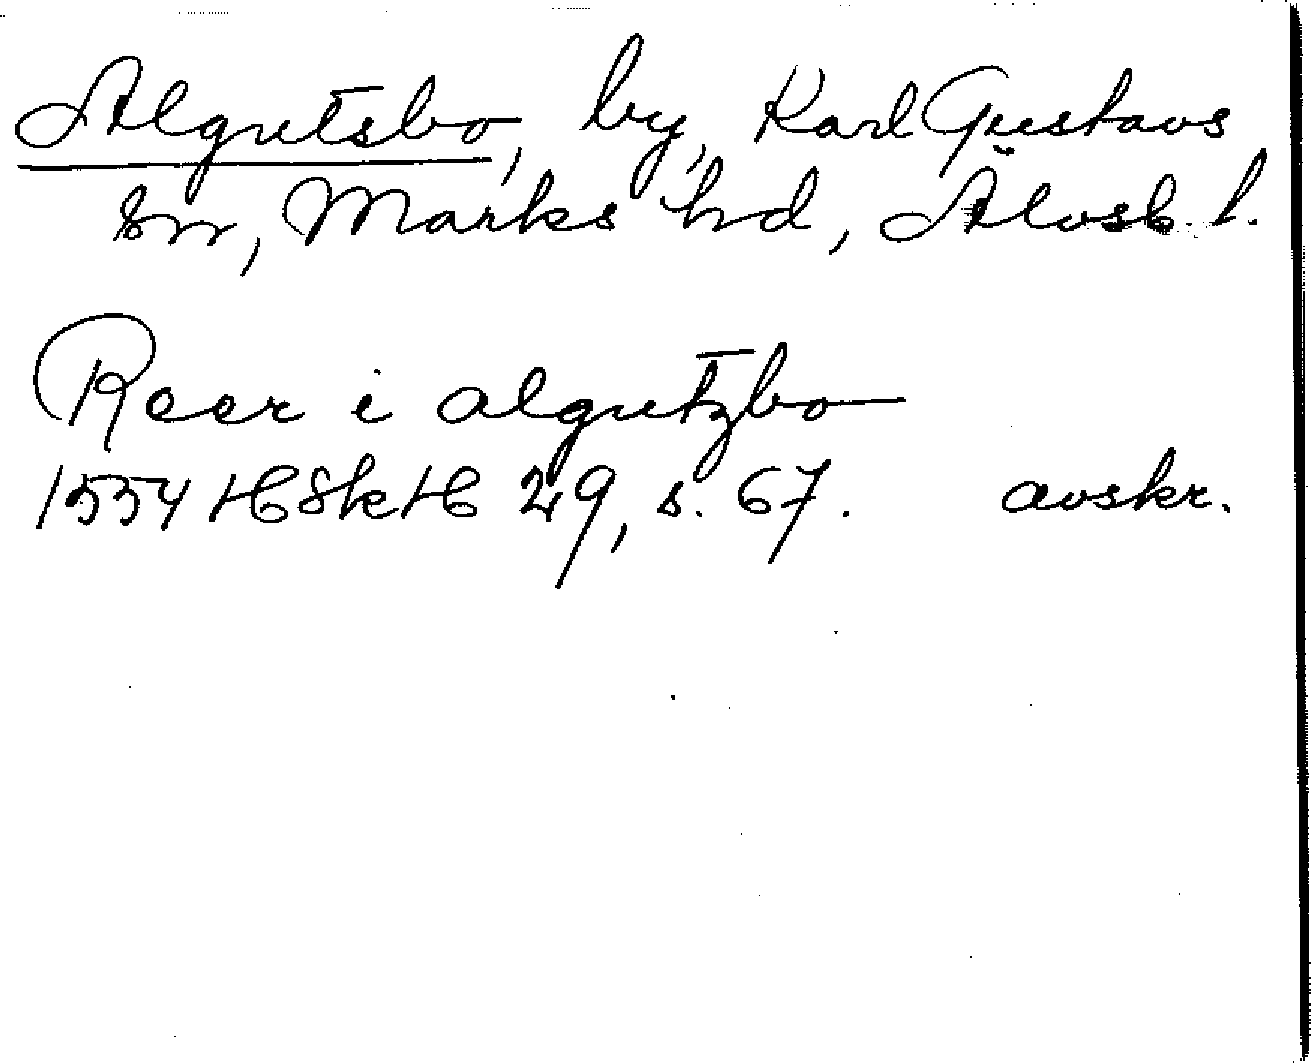 Algutsbo, by, Karl Gustavs
sn, Marks hd, Älvsb. l.
Roer i algutzbo
1554 HSkH 29, s. 67. avskr.